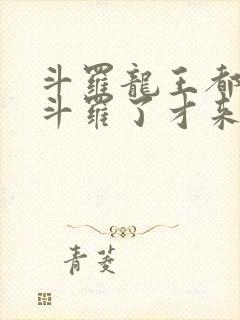 斗羅龍王都
斗羅了才來
青菱